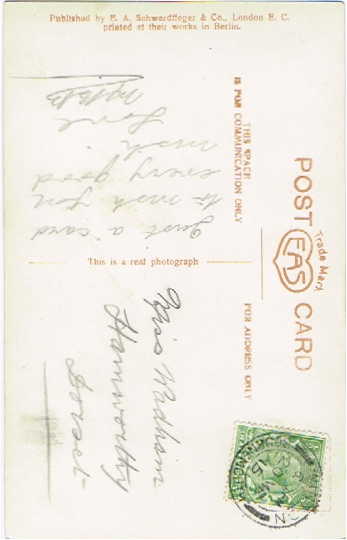 Published by E. A. Schwerdtfeger & Co., London E. C.
printed at their works in Berlin.
POST CARD
Trade Mark
EAS
THIS SPACE
IS FOR COMMUNICATION ONLY
FOR ADDRESS ONLY
This is a real photograph
Just a card
to wish you
every good
wish
Love
Miss Wadham
Hamworthy
Dorset